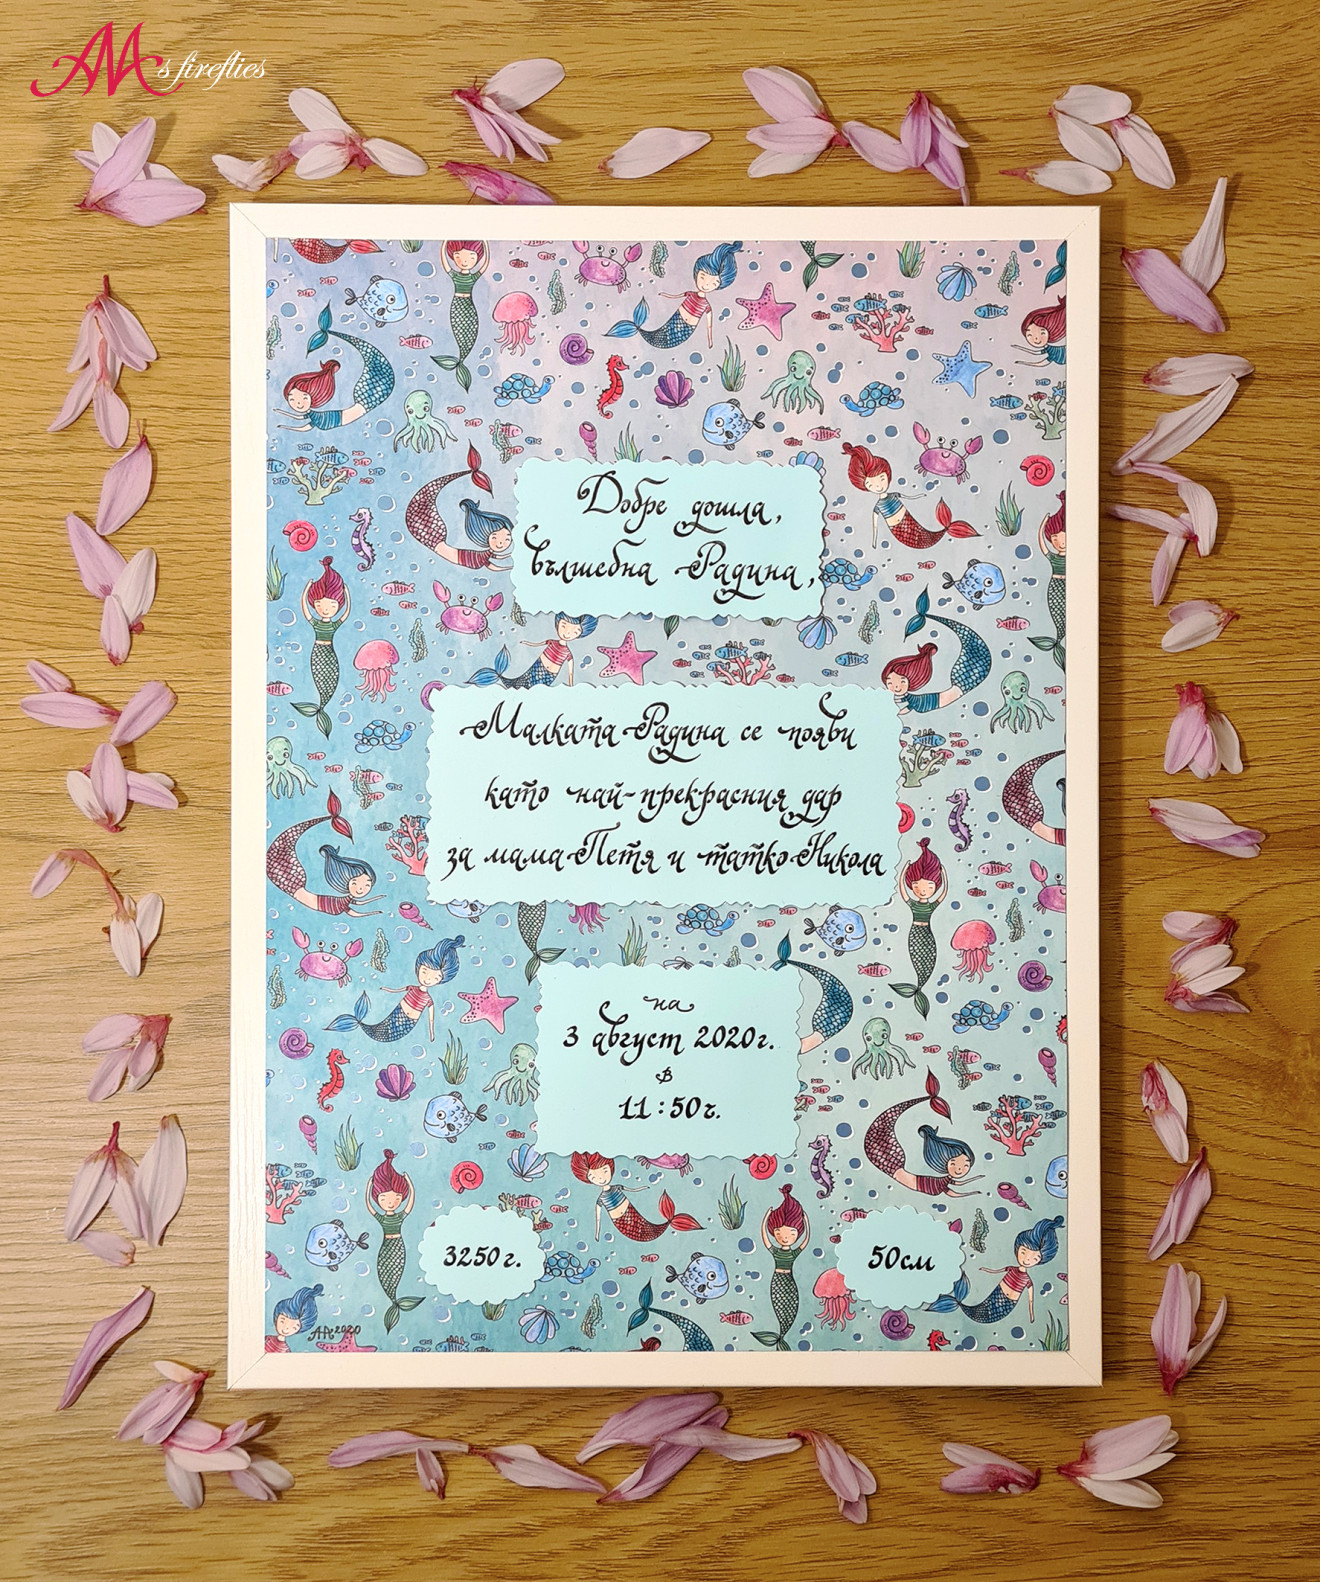 AM's fireflies
Добре дошла,
вълшебна Радина,
Малката Радина се появи
като най-прекрасния дар
за мама Петя и татко Никола
на
3 август 2020г.
в
11:50ч.
3250г.
50см
AA 2020